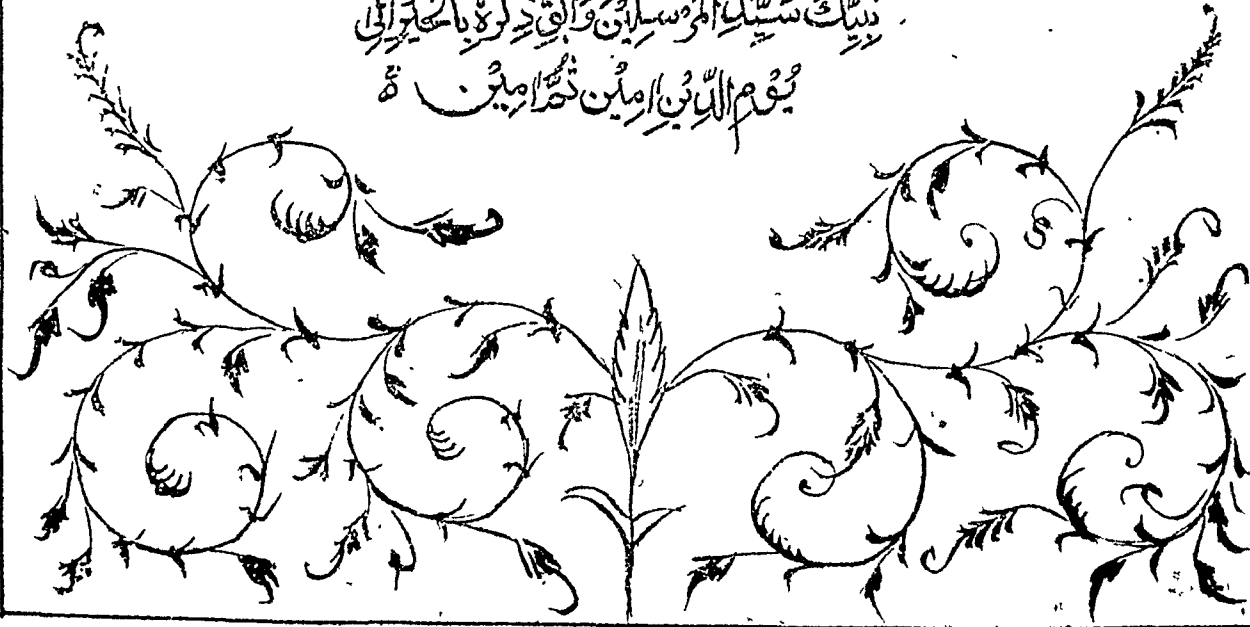 نَبِيِّكَ سَيِّدِ الْمُرْسَلِيْنَ وَاَبْقِ ذِكْرَهٗ بِالْخَيْرِ اِلٰى
يَوْمِ الدِّيْنِ اٰمِيْن ثُمَّ اٰمِيْن